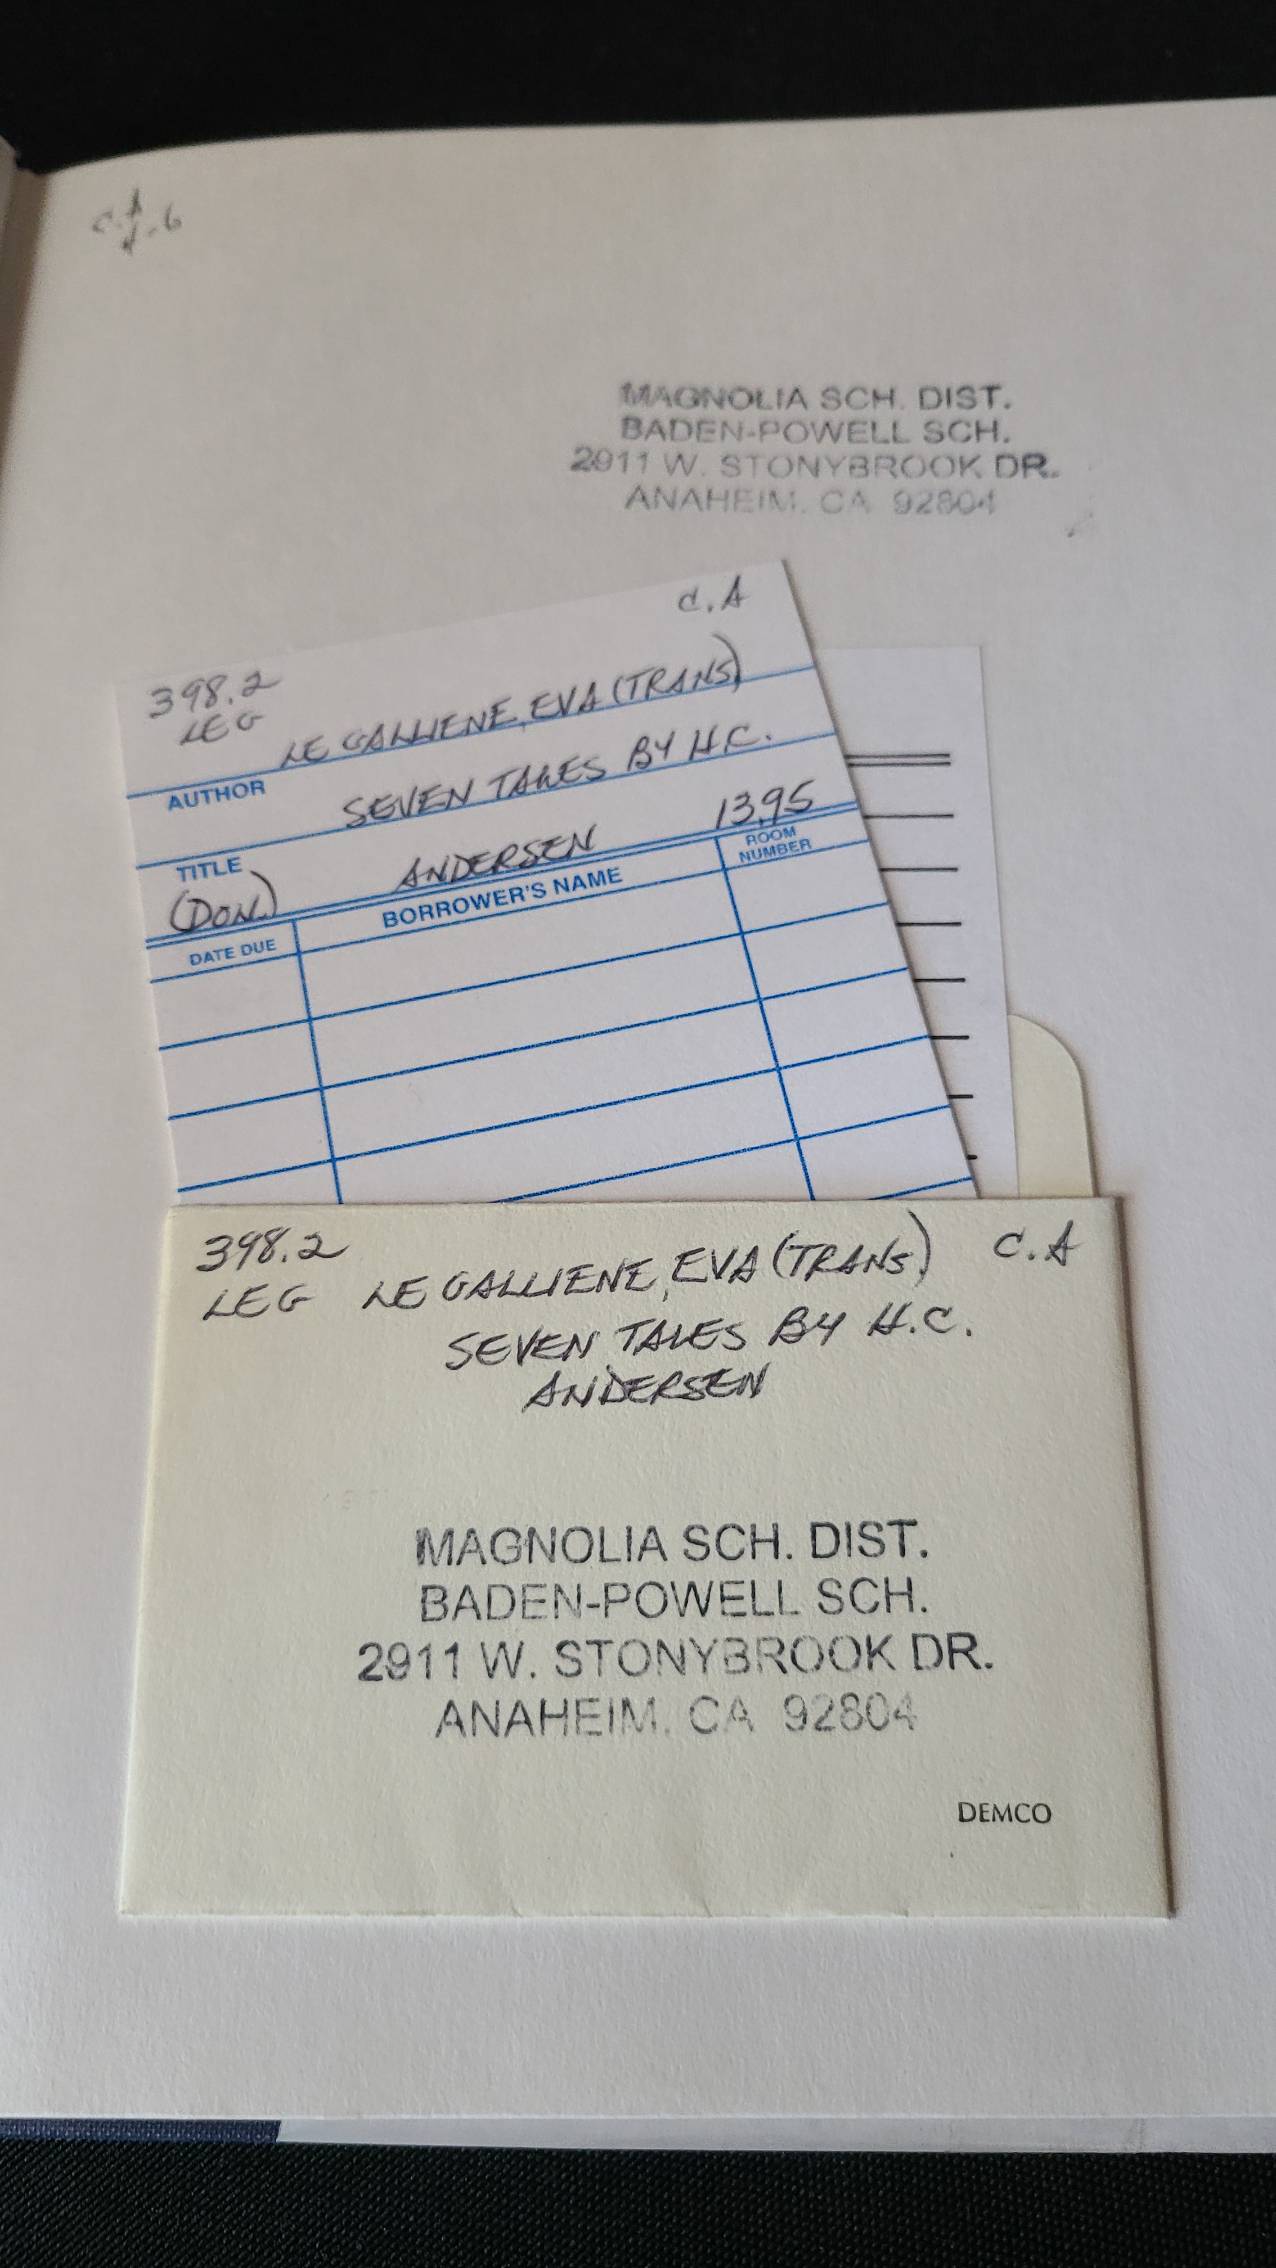 MAGNOLIA SCH. DIST.
BADEN-POWELL SCH.
2911 W. STONYBROOK DR.
ANAHEIM, CA 92804
C.A
398.2
LEG
LE GALLIENE, EVA (TRANS)
AUTHOR
SEVEN TALES BY H.C.
TITLE
ANDERSEN 13.95
(DON.)
DATE DUE BORROWER'S NAME ROOM NUMBER
398.2 C.A
LEG LE GALLIENE, EVA (TRANS)
SEVEN TALES BY H.C.
ANDERSEN
MAGNOLIA SCH. DIST.
BADEN-POWELL SCH.
2911 W. STONYBROOK DR.
ANAHEIM, CA 92804
DEMCO